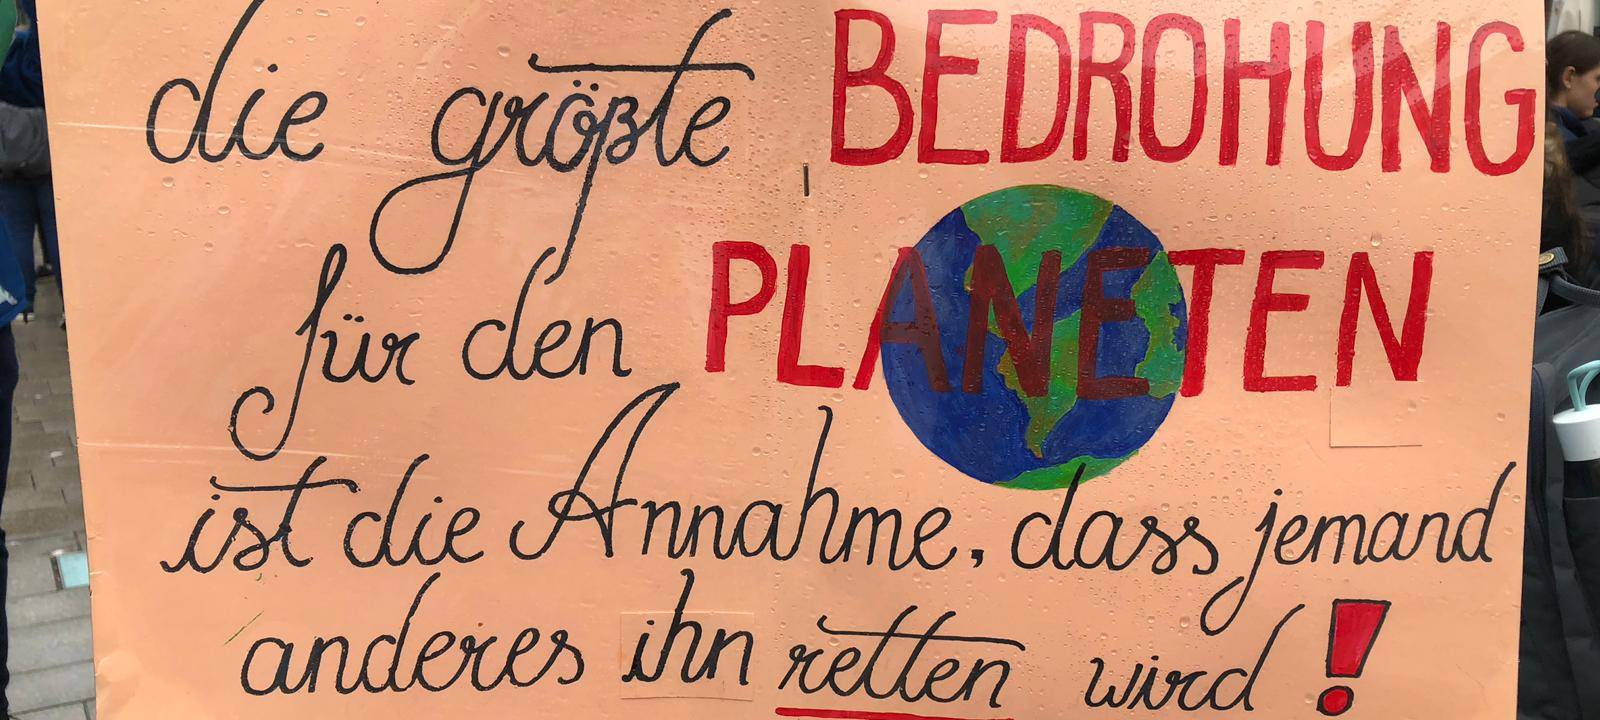 die größte BEDROHUNG
für den PLANETEN
ist die Annahme, dass jemand
anderes ihn retten wird!